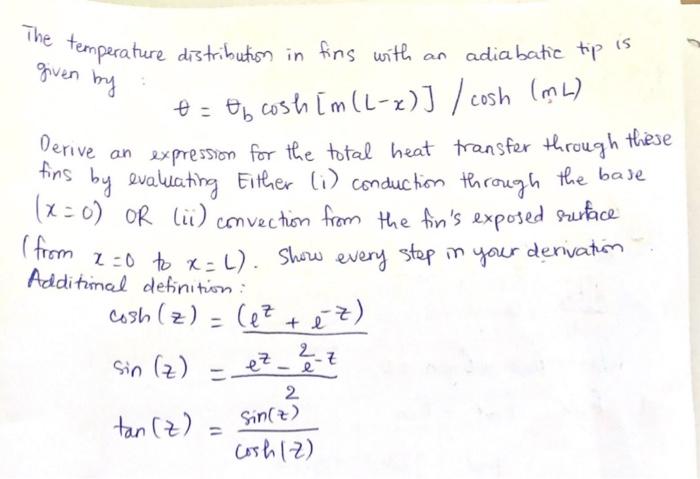 The temperature distribution in fins with an adiabatic tip is
given by :
θ = θb cosh [m(L-x)] / cosh (mL)
Derive an expression for the total heat transfer through these
fins by evaluating Either (i) conduction through the base
(x = 0) OR (ii) convection from the fin's exposed surface
(from x = 0 to x = L). Show every step in your derivation
Additional definition :
cosh (z) = (e^z + e^-z) / 2
sin (z) = e^z - e^-z / 2
tan (z) = sin(z) / cosh(z)